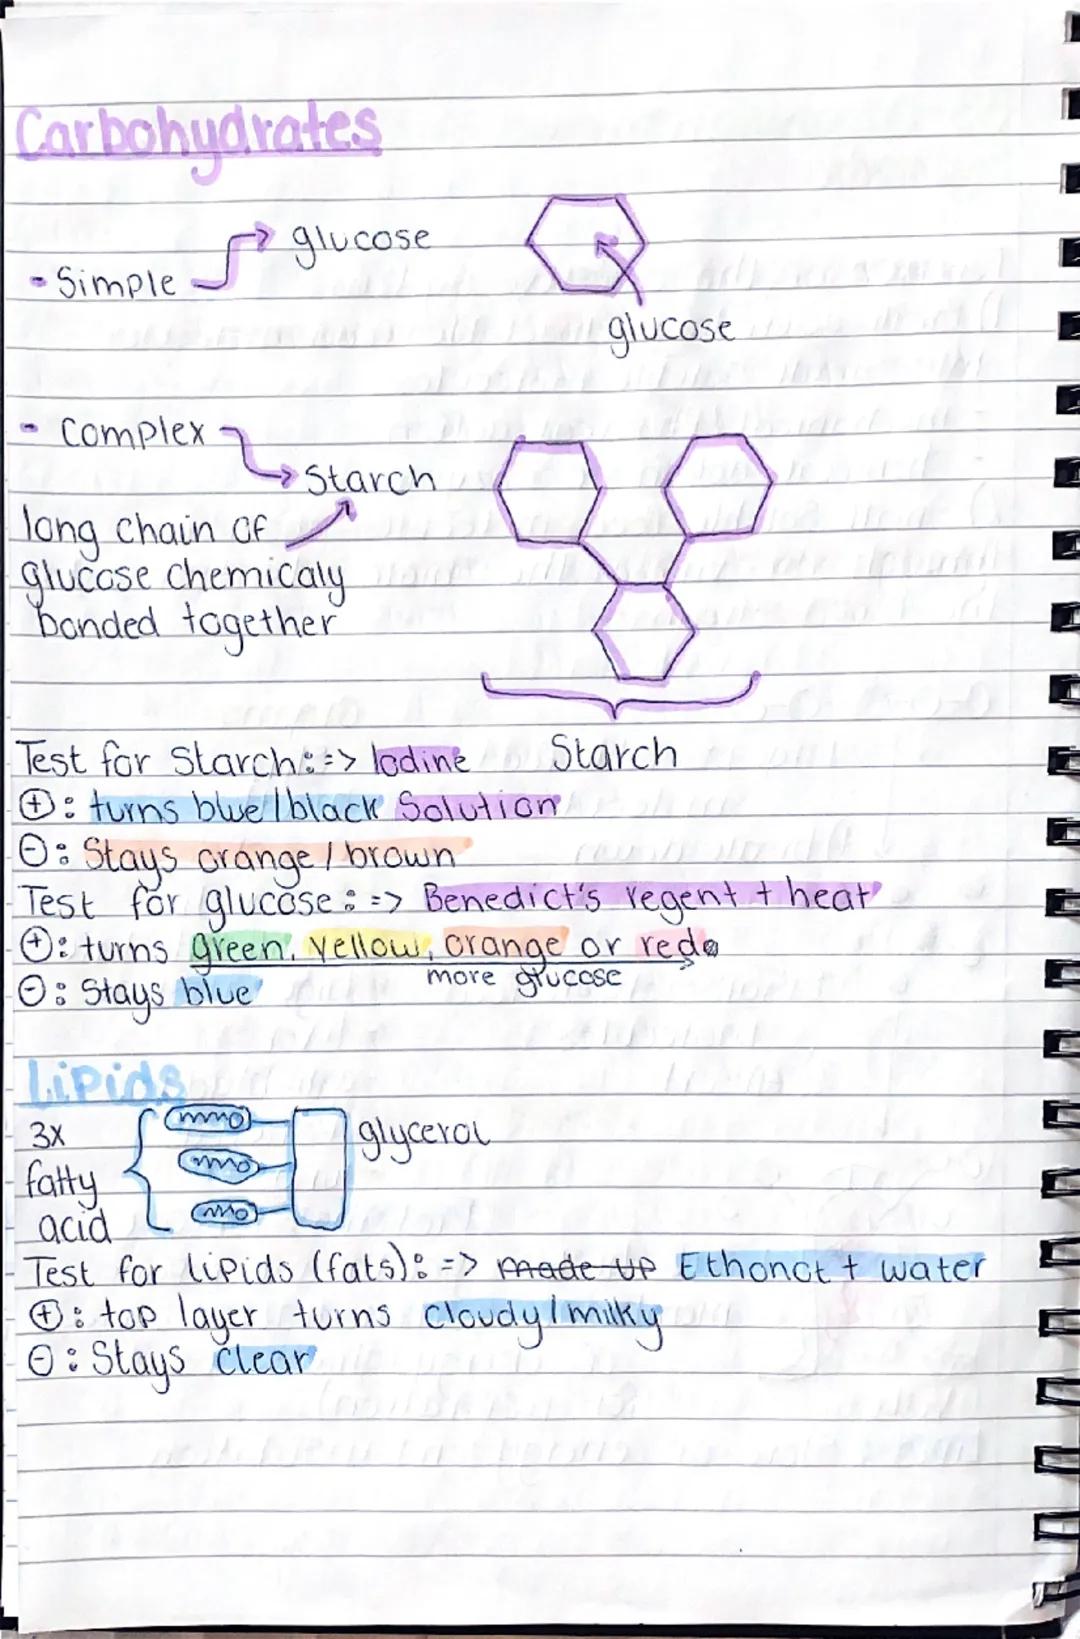 Carbohydrates
- Simple → glucose
glucose
- Complex → Starch
long chain of
glucose chemicaly
bonded together
Starch
Test for Starch: => Iodine
⊕: turns blue/black Solution
⊖: Stays orange/brown
Test for glucose: => Benedict's regent + heat
⊕: turns green, yellow, orange or red
more glucose
⊖: Stays blue
Lipids
3x
fatty
acid
glycerol
Test for lipids (fats): => made up Ethonot + water
⊕: top layer turns cloudy/milky
⊖: Stays clear